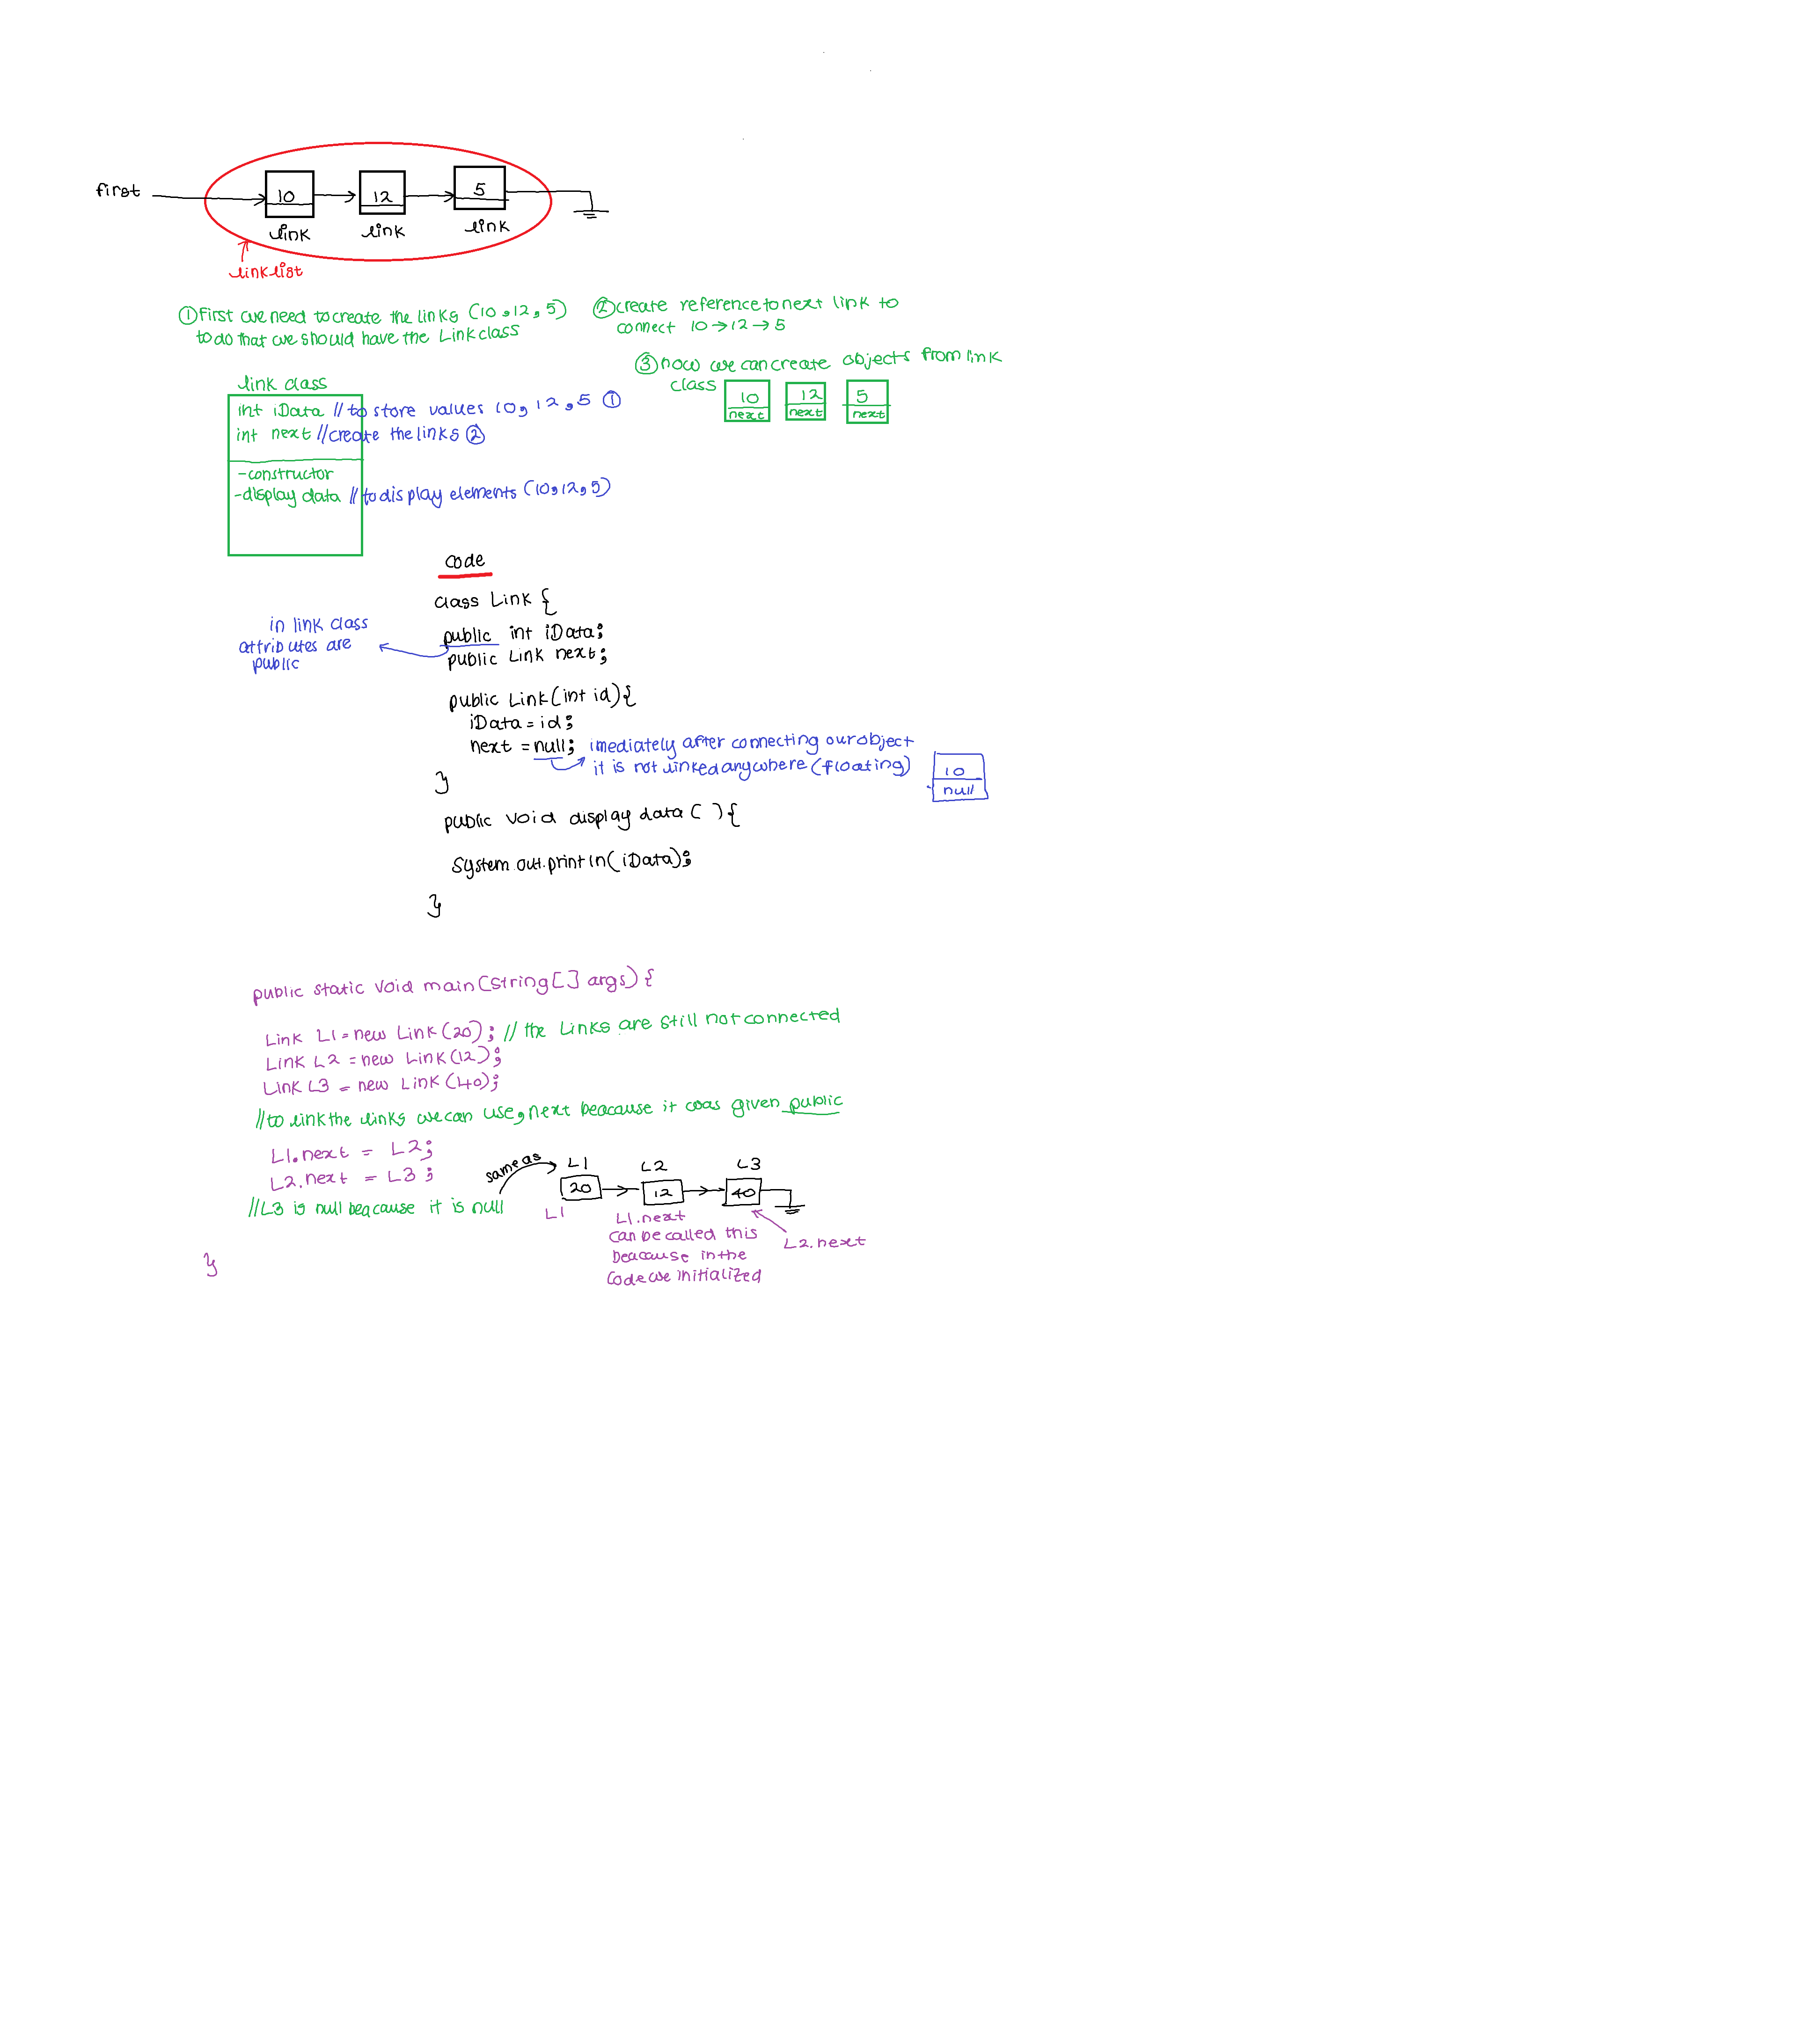 first
10
12
5
link
link
link
linklist
① First we need to create the links (10,12,5)
to do that we should have the Link class
② create reference to next link to
connect 10→12→5
③ now we can create objects from link
class
10
next
12
next
5
next
link class
int iData // to store values 10, 12, 5 ①
int next // create the links ②
-constructor
-display data // to display elements (10,12,5)
code
class Link {
in link class
attributes are
public
public int iData;
public Link next;
public Link(int id){
iData = id;
next = null; imediately after connecting our object
it is not linked anywhere (floating)
10
null
}
public void display data ( ) {
System.out.println(iData);
}
public static void main (String [] args) {
Link L1 = new Link (20); // the Links are still not connected
Link L2 = new Link (12);
Link L3 = new Link (40);
// to link the links we can use, next beacause it was given public
L1.next = L2;
L2.next = L3;
// L3 is null beacause it is null
same as
L1
L2
L3
20
12
40
L1
L1.next
can be called this
beacause in the
code we initialized
L2.next
}